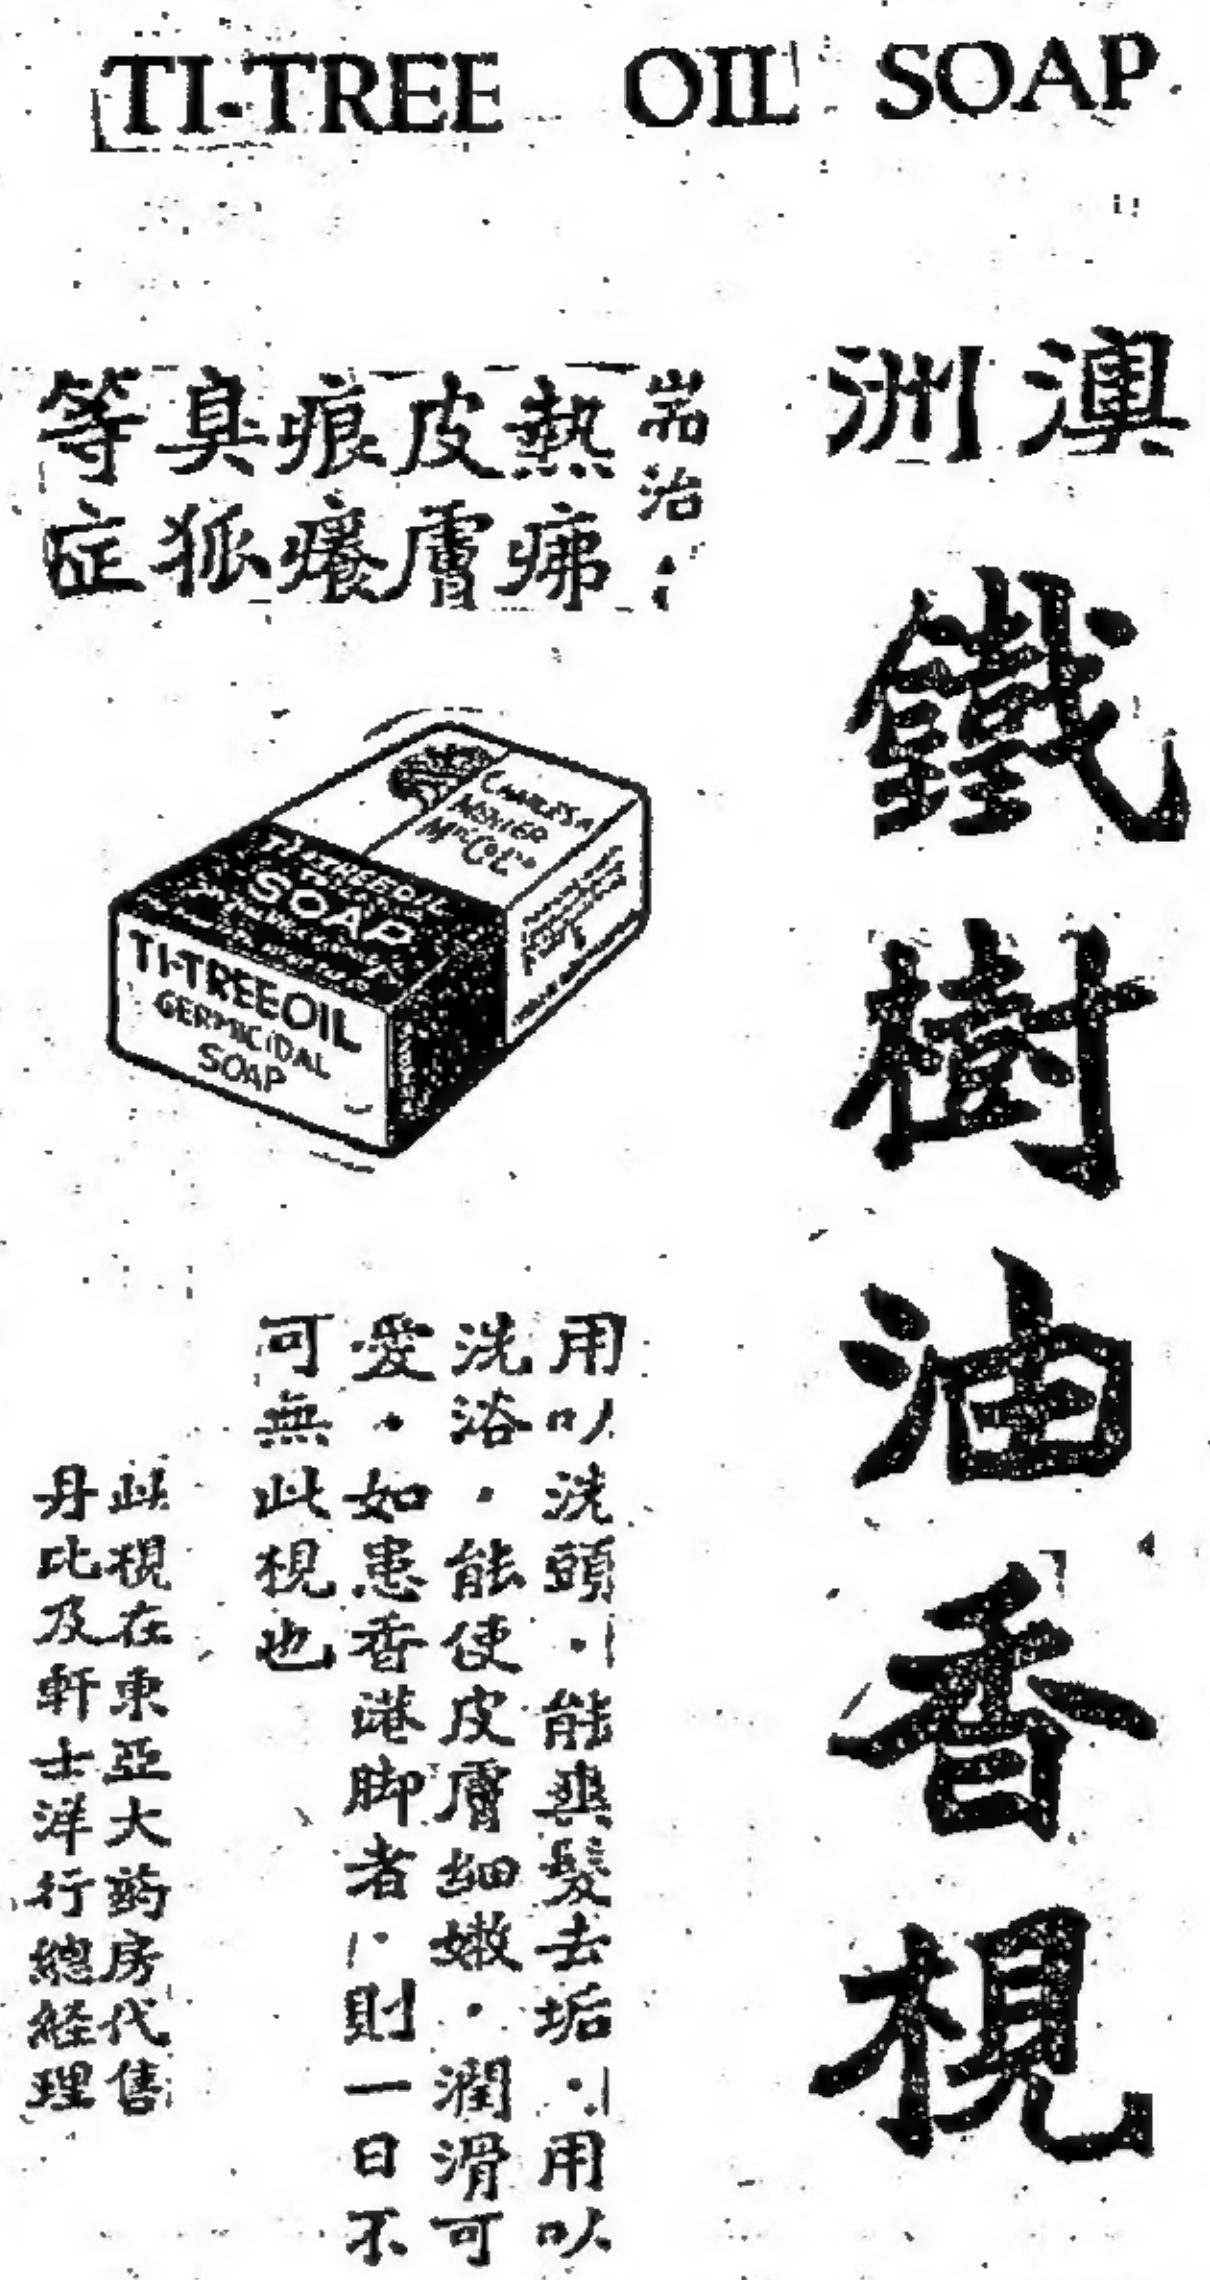 TI-TREE OIL SOAP
澳洲
鐵樹油香梘
耑治
熱疿
皮膚
痕癢
臭狐
等症
CHARLES
MCCOY
TI-TREEOIL
SOAP
TI-TREEOIL
GERMICIDAL
SOAP
用以洗頭．能爽髮去垢．用以
洗浴．能使皮膚細嫩．潤滑可
愛．如患香港脚者．則一日不
可無此梘也
此梘在東亞大葯房代售
丹比及軒士洋行總経理